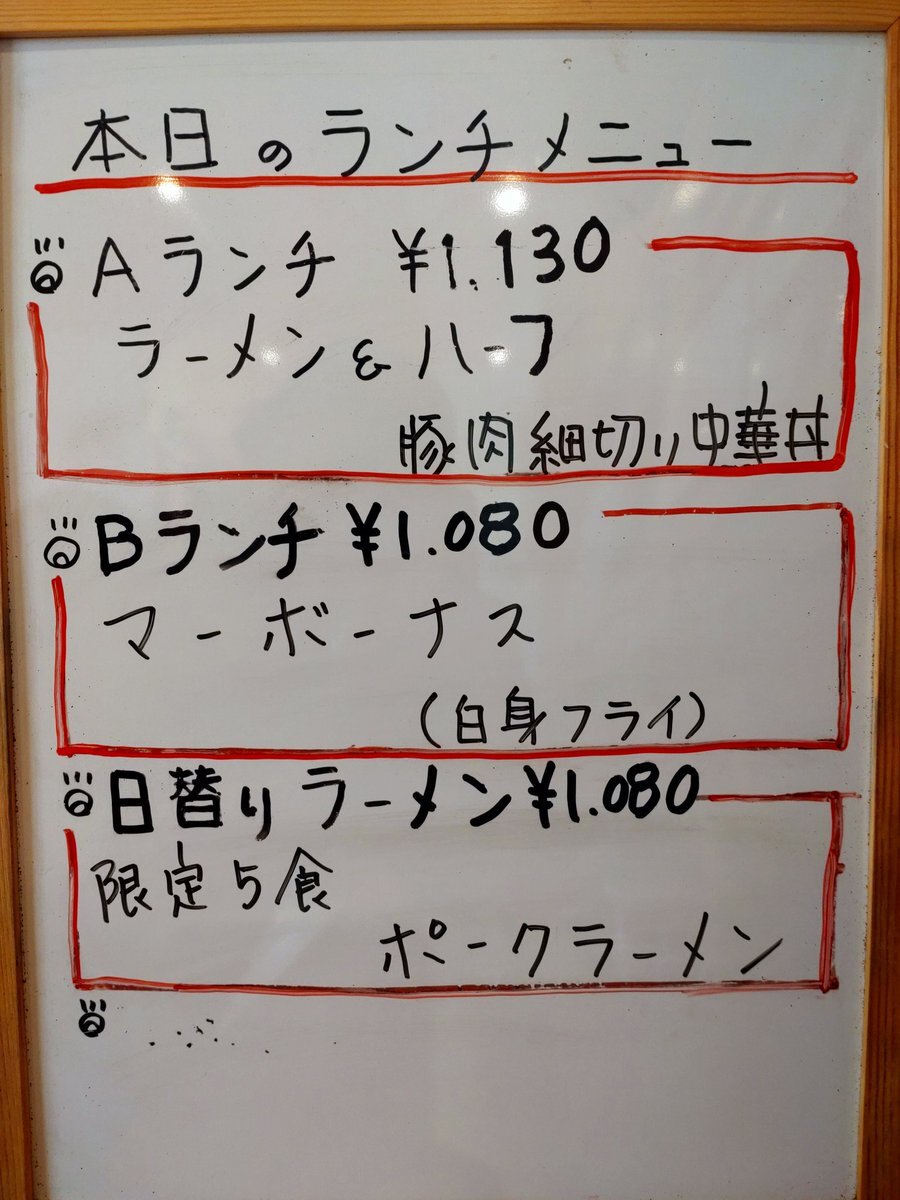 本日のランチメニュー
Aランチ ¥1.130
ラーメン&ハーフ
豚肉細切り中華丼
Bランチ ¥1.080
マーボーナス
(白身フライ)
日替りラーメン¥1.080
限定5食
ポークラーメン